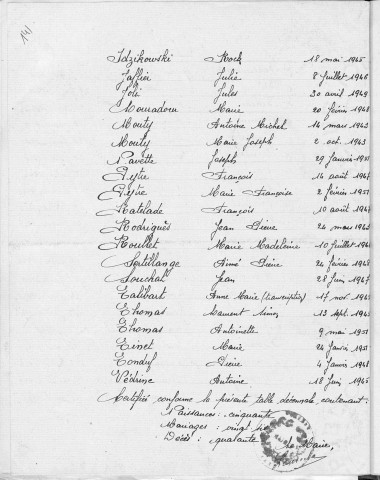 Idzikowski Rock 18 mai 1945
Jaffier Julie 8 Juillet 1946
Joli Jules 20 avril 1949
Mouradom Marie 20 février 1948
Mouty Antoine Michel 14 mars 1943
Mouty Marie Joseph 2 oct. 1943
Navette Joseph 29 Janvier 1951
Peytre François 14 août 1947
Peytre Marie Françoise 2 février 1951
Ratelade François 10 août
Rodrigues Jean Pierre 24 mars
Roullet Marie Madeleine 10 Juillet
Sartillange Aimé Pierre 24 février
Souchal Jean 28 Juin 1947
Talibart Anne Marie (transcription) 17 nov.
Thomas Laurent Simon 13 sept.
Thomas Antoinette 9 mai 1951
Tinet Marie 24 Janvier 1951
Tonduf Pierre 4 Janvier 1948
Védrine Antoine 18 Juin 1945
Certifiée conforme la présente table décennale contenant:
Naissances: cinquante
Mariages: vingt
Décès: quarante
Le Maire,